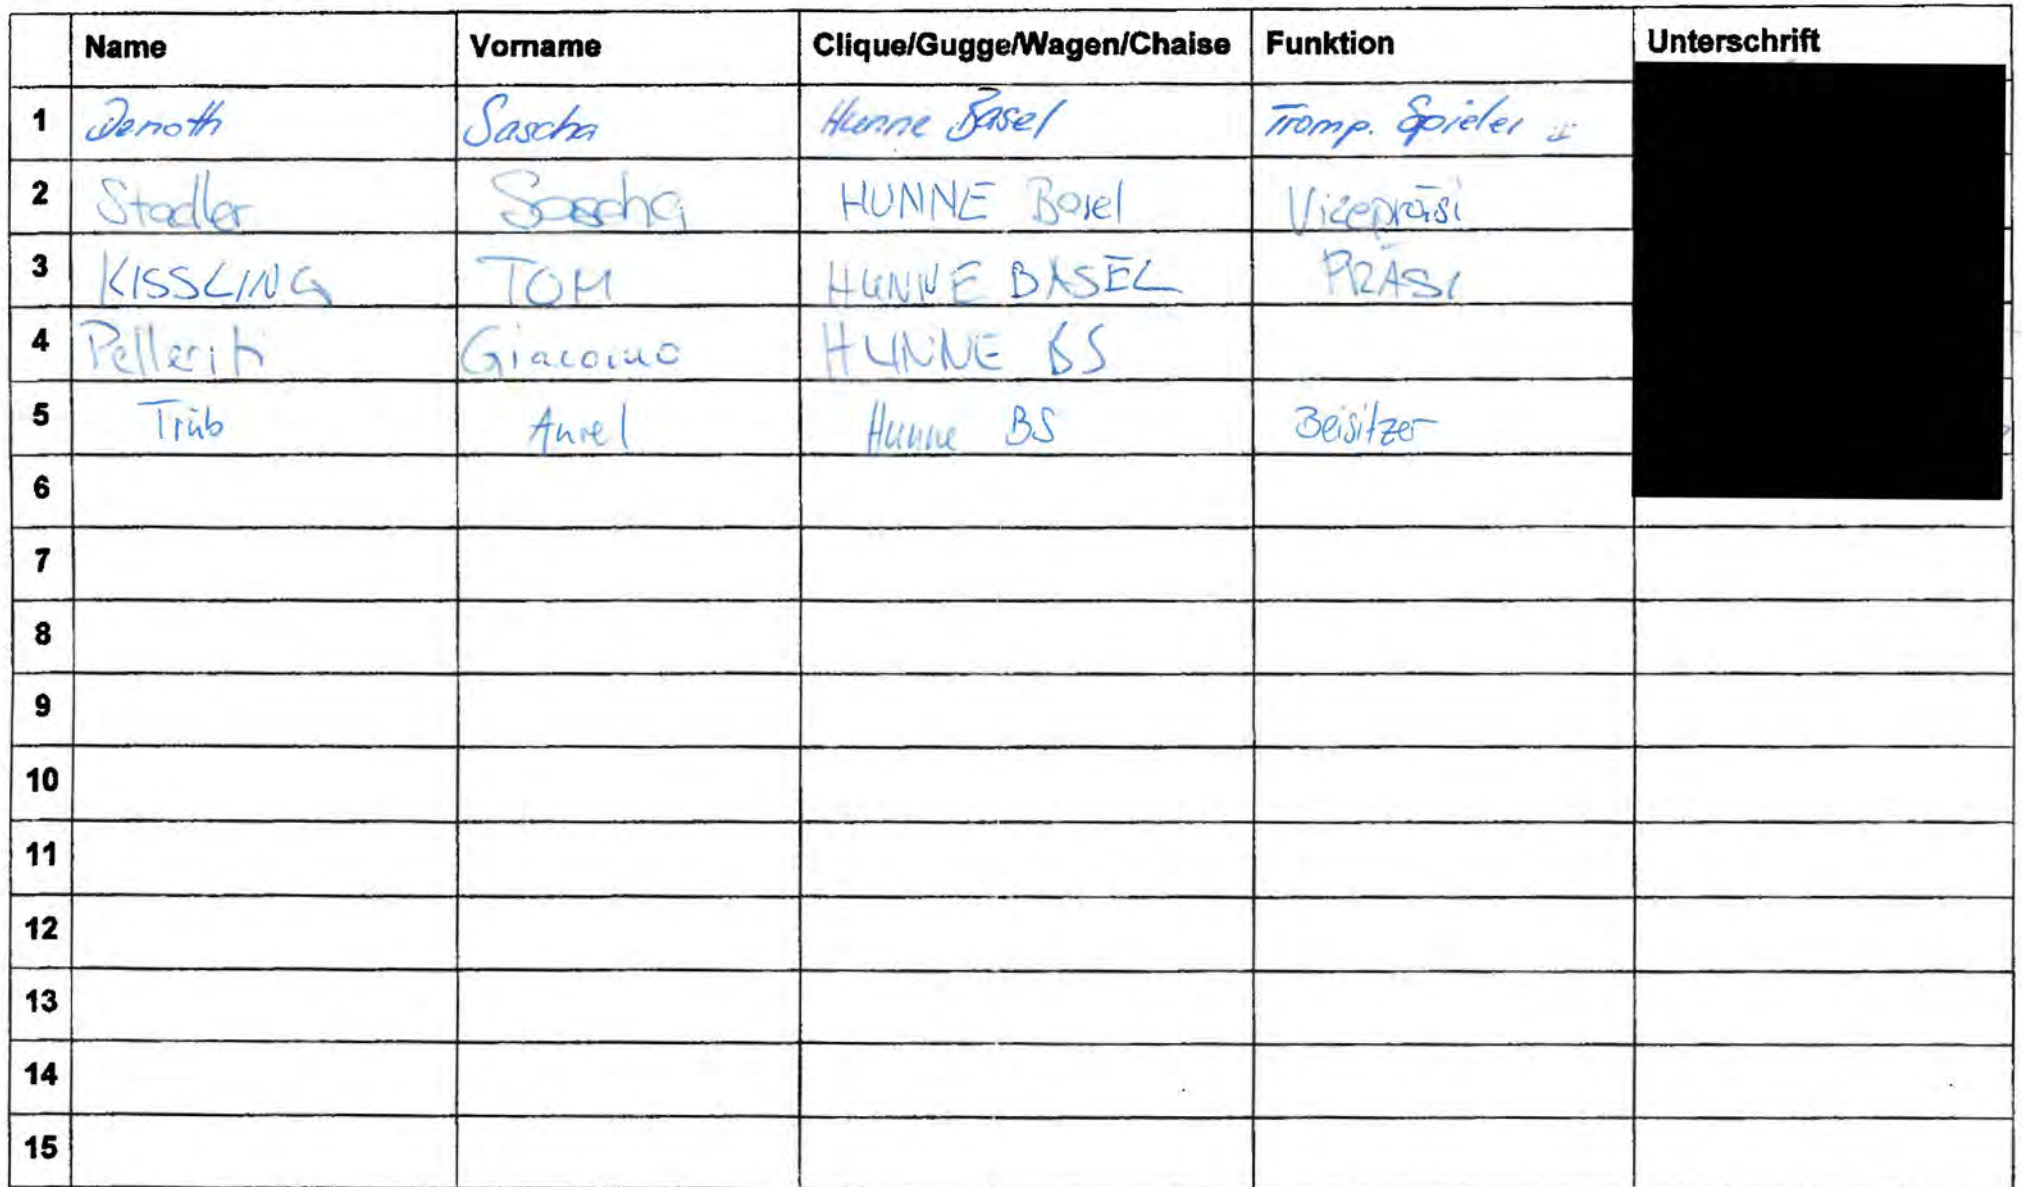 Name Vorname Clique/Gugge/Wagen/Chaise Funktion Unterschrift
1 Denoth Sascha Hunne Basel Tromp. Spieler
2 Stadler Sascha HUNNE Basel Vicepräsi
3 KISSLING TOM HUNNE BASEL PRÄSI
4 Pelleriti Giacomo HUNNE BS
5 Trüb Aurel Hunne BS Beisitzer
6
7
8
9
10
11
12
13
14
15